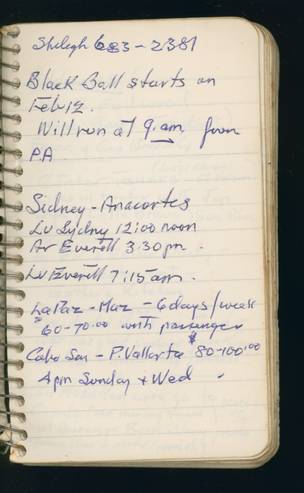 Shelegh 683-2381
Black Ball starts on
Feb 12.
Will run at 9.am from
P.A.
Sidney - Anacortes
Lv Sydny 12:00 noon
Ar Everett 3.30pm.
Lv Everett 7:15am.
LaPaz - Maz - 6 days/week
$60-70.00 with passenger
Cabo San - P.Vallarta $80-100.00
4pm Sunday + Wed